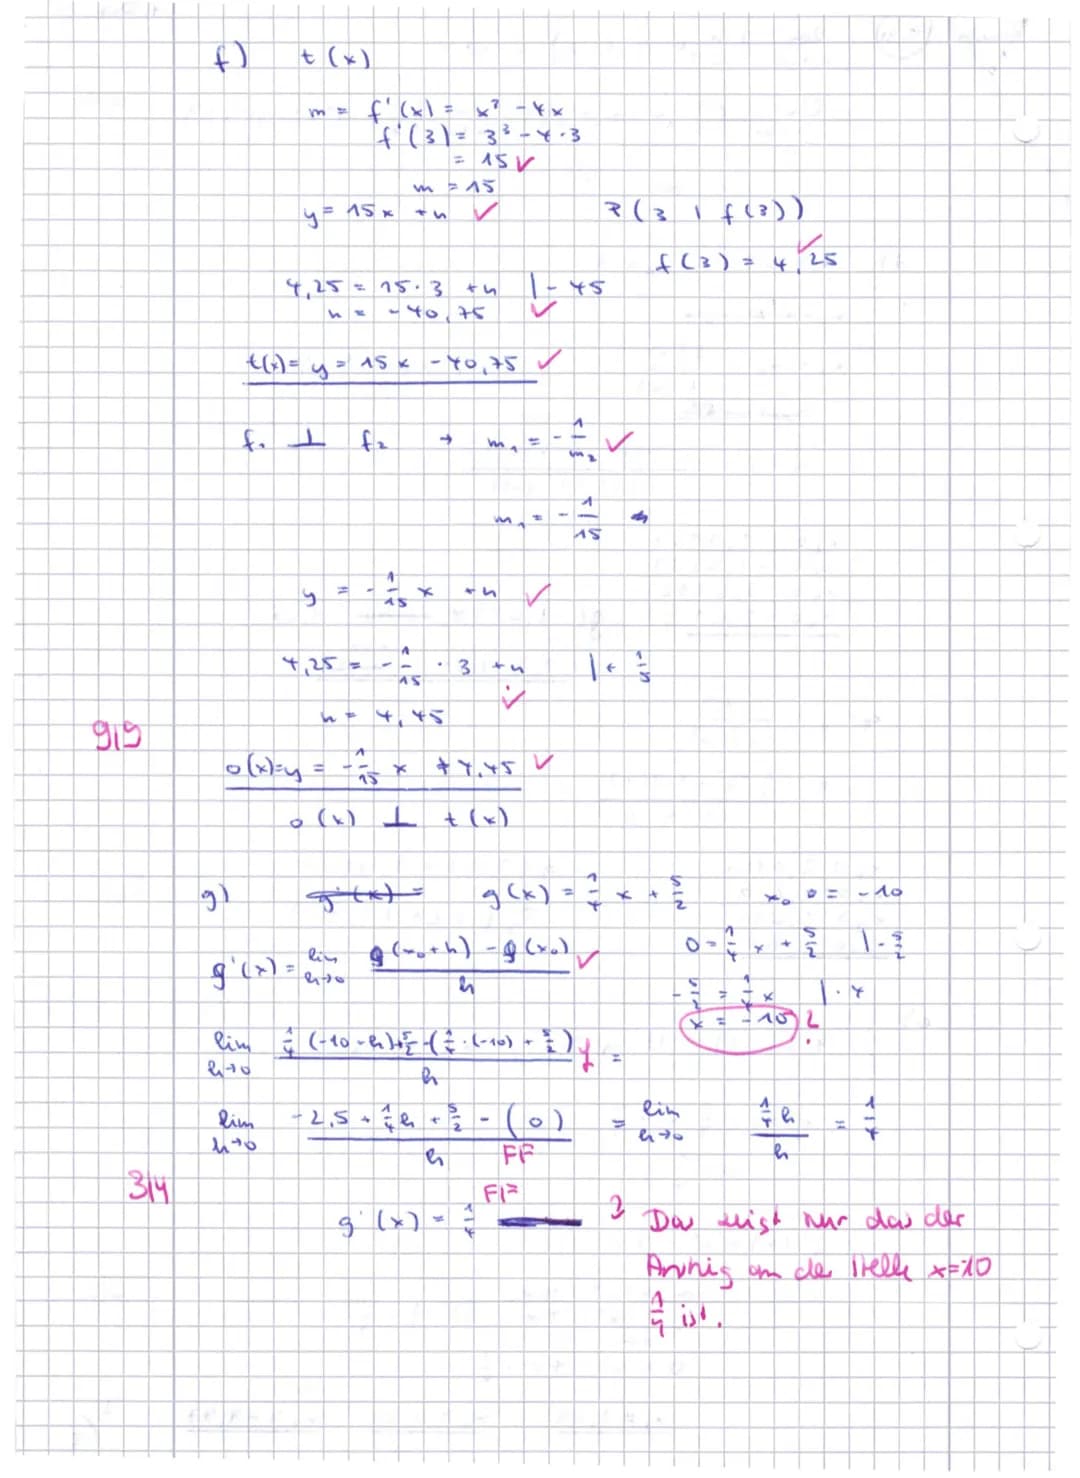 f) t(x)
m = f'(x) = x³ - 4x
f'(3) = 3³ - 4·3
= 15 ✓
m = 15
y = 15x + n ✓ P(3 | f(3))
f(3) = 4,25 ✓
4,25 = 15·3 + n | - 45
n = - 40,75 ✓
t(x) = y = 15x - 40,75 ✓
f₁ ⊥ f₂ → m₁ = - 1/m₂ ✓
m₁ = - 1/15
y = - 1/15 x + n ✓
4,25 = - 1/15 · 3 + n | + 1/5
✓
n = 4,45
9/9
o(x) = y = - 1/15 x + 4,45 ✓
o(x) ⊥ t(x)
g) g'(x) = g(x) = 1/4 x + 5/2 x₀ = -10
0 = 1/4 x + 5/2 | - 5/2
g'(x) = lim h→0 (g(x₀+h) - g(x₀))/h ✓
- 5/2 = 1/4 x | · 4
x = -10 ?
lim h→0 (1/4 (-10 - h) + 5/2 - (1/4 · (-10) + 5/2))/h f =
lim h→0 (-2,5 + 1/4 h + 5/2 - (0))/h = lim h→0 (1/4 h)/h = 1/4
FF
3/4
FF
g'(x) = 1/4
? Das zeigt nur das der
Anstieg an der Stelle x=-10
1/4 ist.